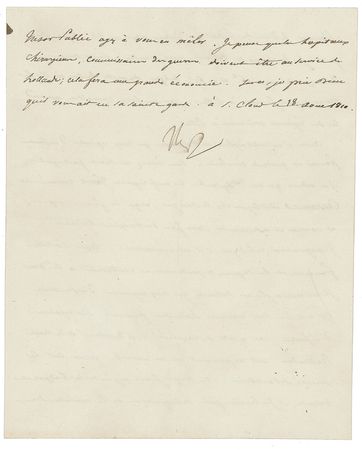 Trésor Public ayez à vous en mêler. Je pense que les hopitaux
chirurgiens, commissaires des guerres doivent être au service de
hollande; cela fera une grande économie. Sur ce, je prie Dieu
qu'il vous ait en sa sainte garde. à S. Cloud le 28 Aout 1810.
Np